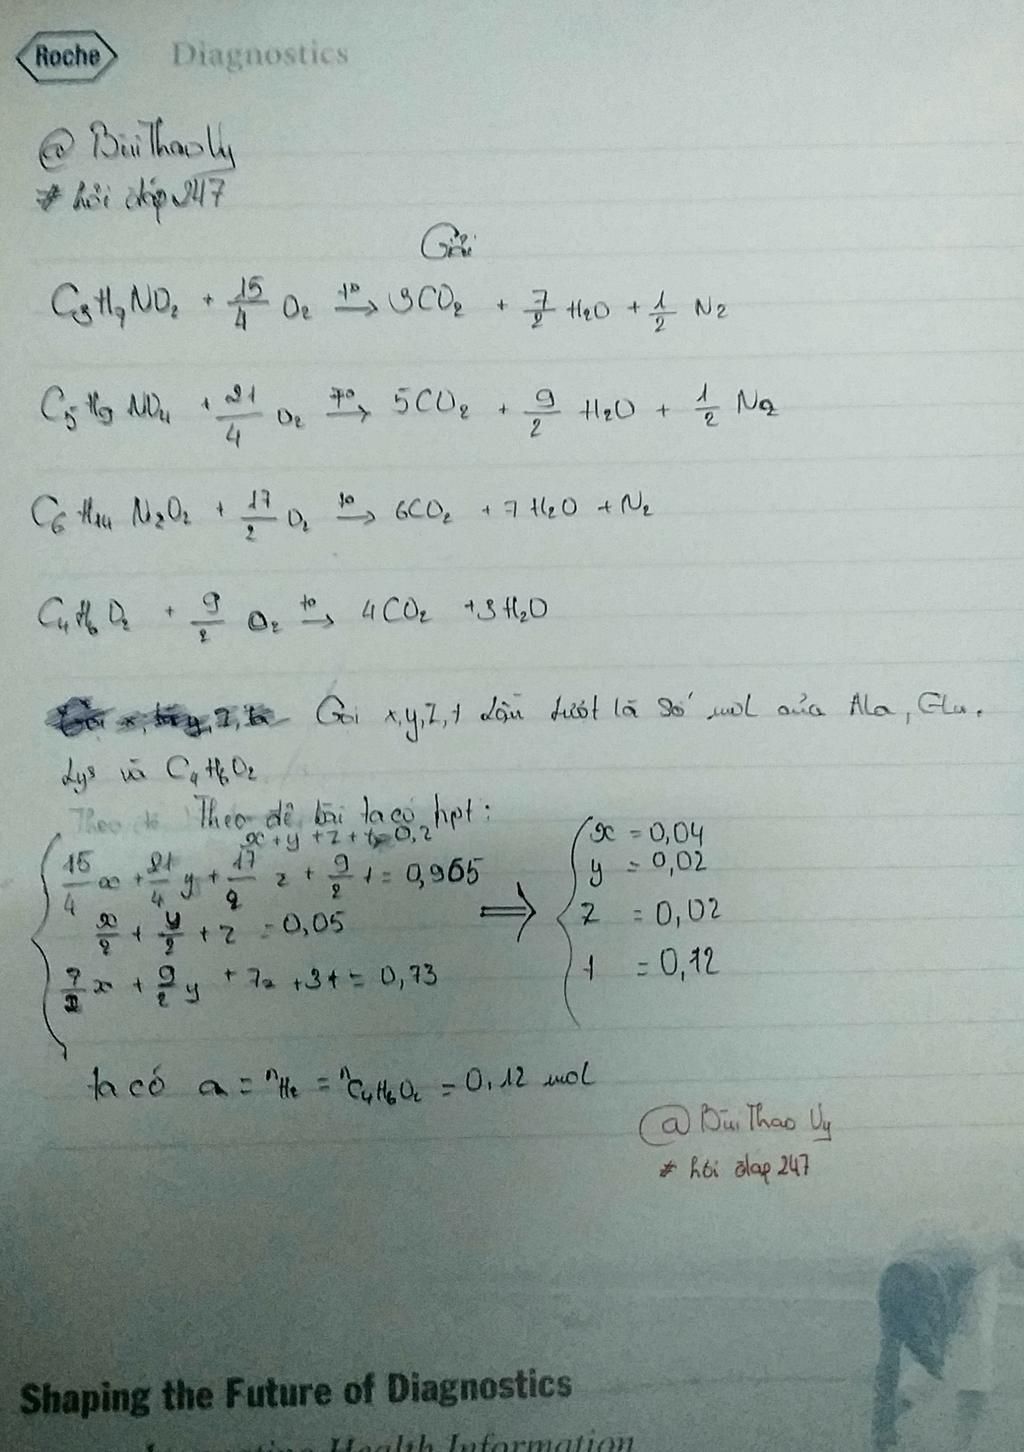 Roche Diagnostics
@ Bùi Thao Vy
# hỏi đáp 247
Giải
C3H7NO2 + 15/4 O2 t0→ 3CO2 + 7/2 H2O + 1/2 N2
C5H9NO4 + 21/4 O2 t0→ 5CO2 + 9/2 H2O + 1/2 N2
C6H14N2O2 + 17/2 O2 t0→ 6CO2 + 7H2O + N2
C4H6O2 + 9/2 O2 t0→ 4CO2 + 3H2O
Gọi x,y,z,t lần lượt là số mol của Ala, Glu,
Lys và C4H6O2
Theo đề bài ta có hpt:
x + y + z + t = 0,2
15/4 x + 21/4 y + 17/2 z + 9/2 t = 0,965
x/2 + y/2 + z = 0,05
7/2 x + 9/2 y + 7z + 3t = 0,73
⇒
x = 0,04
y = 0,02
z = 0,02
t = 0,12
ta có a = nH2 = nC4H6O2 = 0,12 mol
@ Bùi Thao Vy
# hỏi đáp 247
Shaping the Future of Diagnostics
Health Information